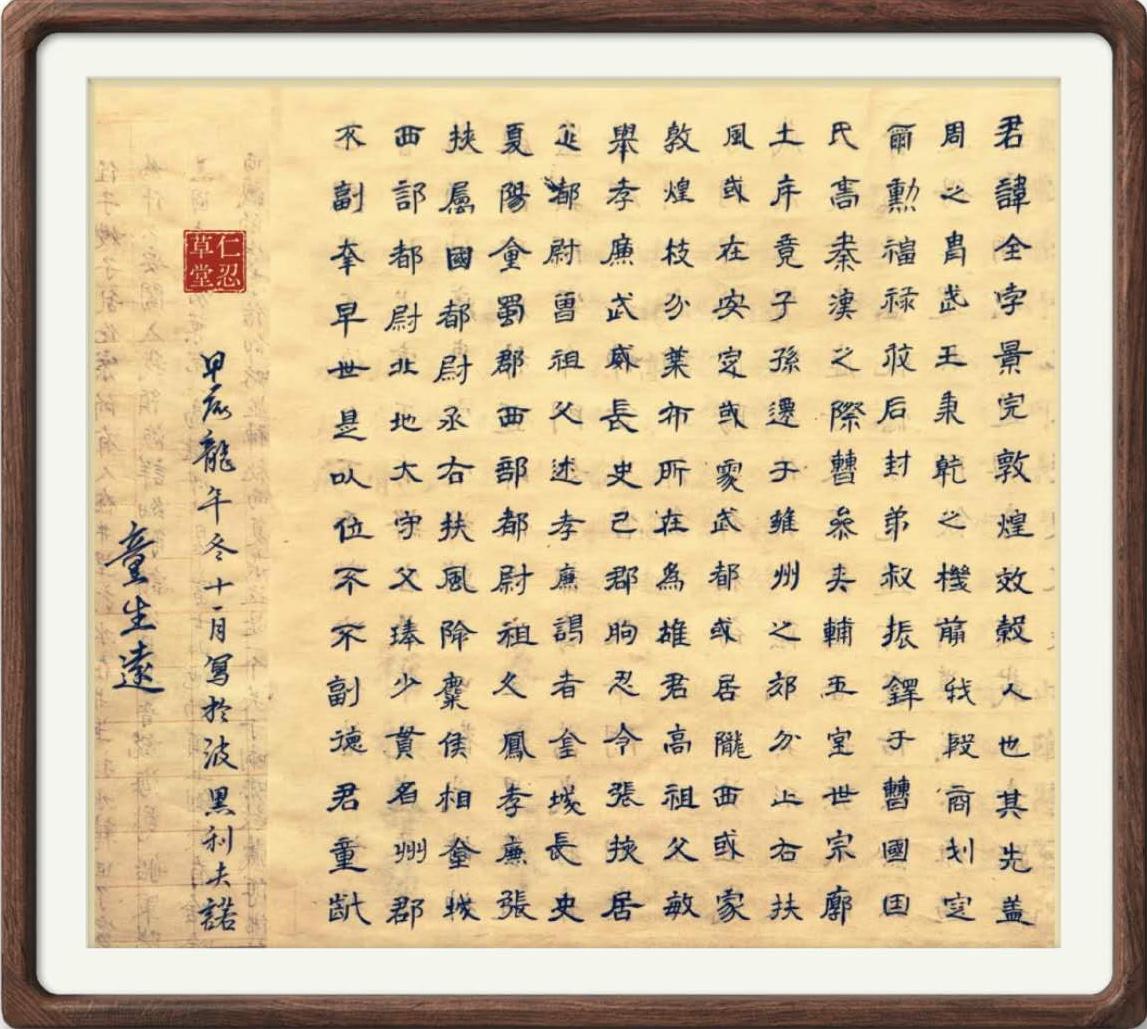 君諱全字景完敦煌效穀人也其先蓋
周之胄武王秉乾之機翦伐殷商定
爾勳福祿攸后封弟叔振鐸于曹國因
氏焉秦漢之際曹參夾輔王室世宗廓
土斥竟子孫遷于雍州之郊分止右扶
風或在安定或處武都或居隴西或家
敦煌枝分葉布所在為雄君高祖父敏
舉孝廉武威長史巴郡朐忍令張掖居
延都尉曾祖父述孝廉謁者金城長史
夏陽令蜀郡西部都尉祖父鳳孝廉張
掖屬國都尉丞右扶風隃麋侯相金城
西部都尉北地大守父琫少貫名州郡
不副夲早世是以位不不副德君童齔
甲辰龍年冬十一月寫於波黑利夫諾
童生遠
仁忍草堂